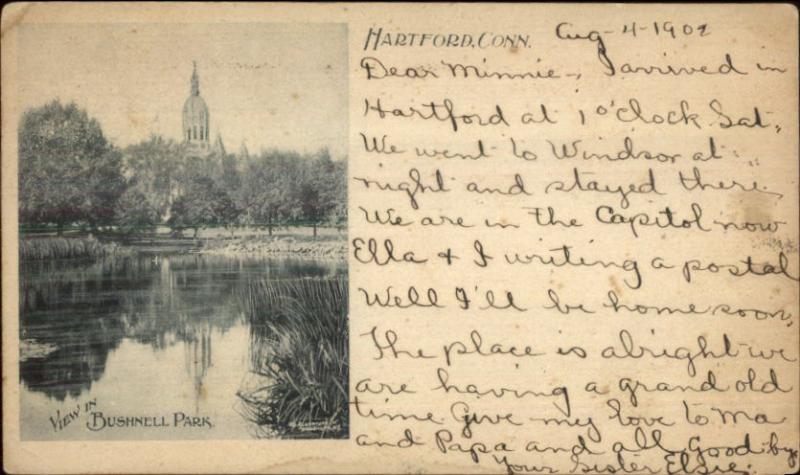 HARTFORD, CONN. Aug-4-1902
Dear Minnie-, I arrived in
Hartford at 1 o'clock Sat,
We went to Windsor at
night and stayed there,
We are in the Capitol now
Ella + I writing a postal
Well I'll be home soon,
The place is alright we
are having a grand old
time Give my love to Ma
and Papa and all Good by
Your sister Elsie.
VIEW IN
BUSHNELL PARK.